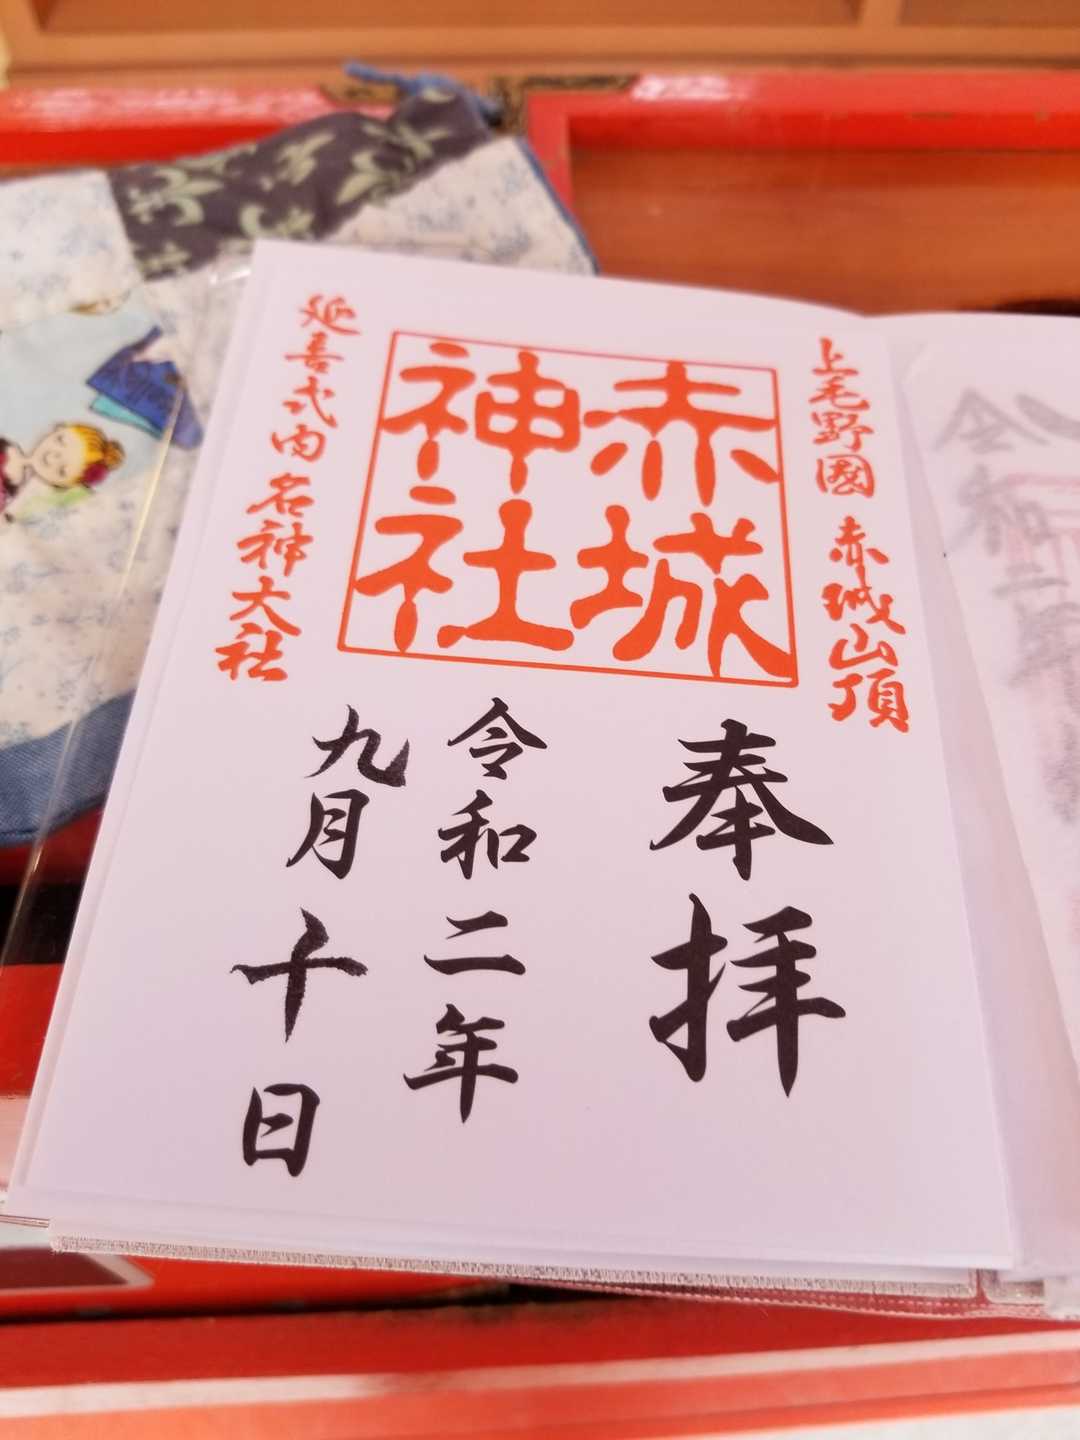 上毛野國 赤城山頂
赤城
神社
延喜式内 名神大社
奉拝
令和二年
九月十日
令和二年